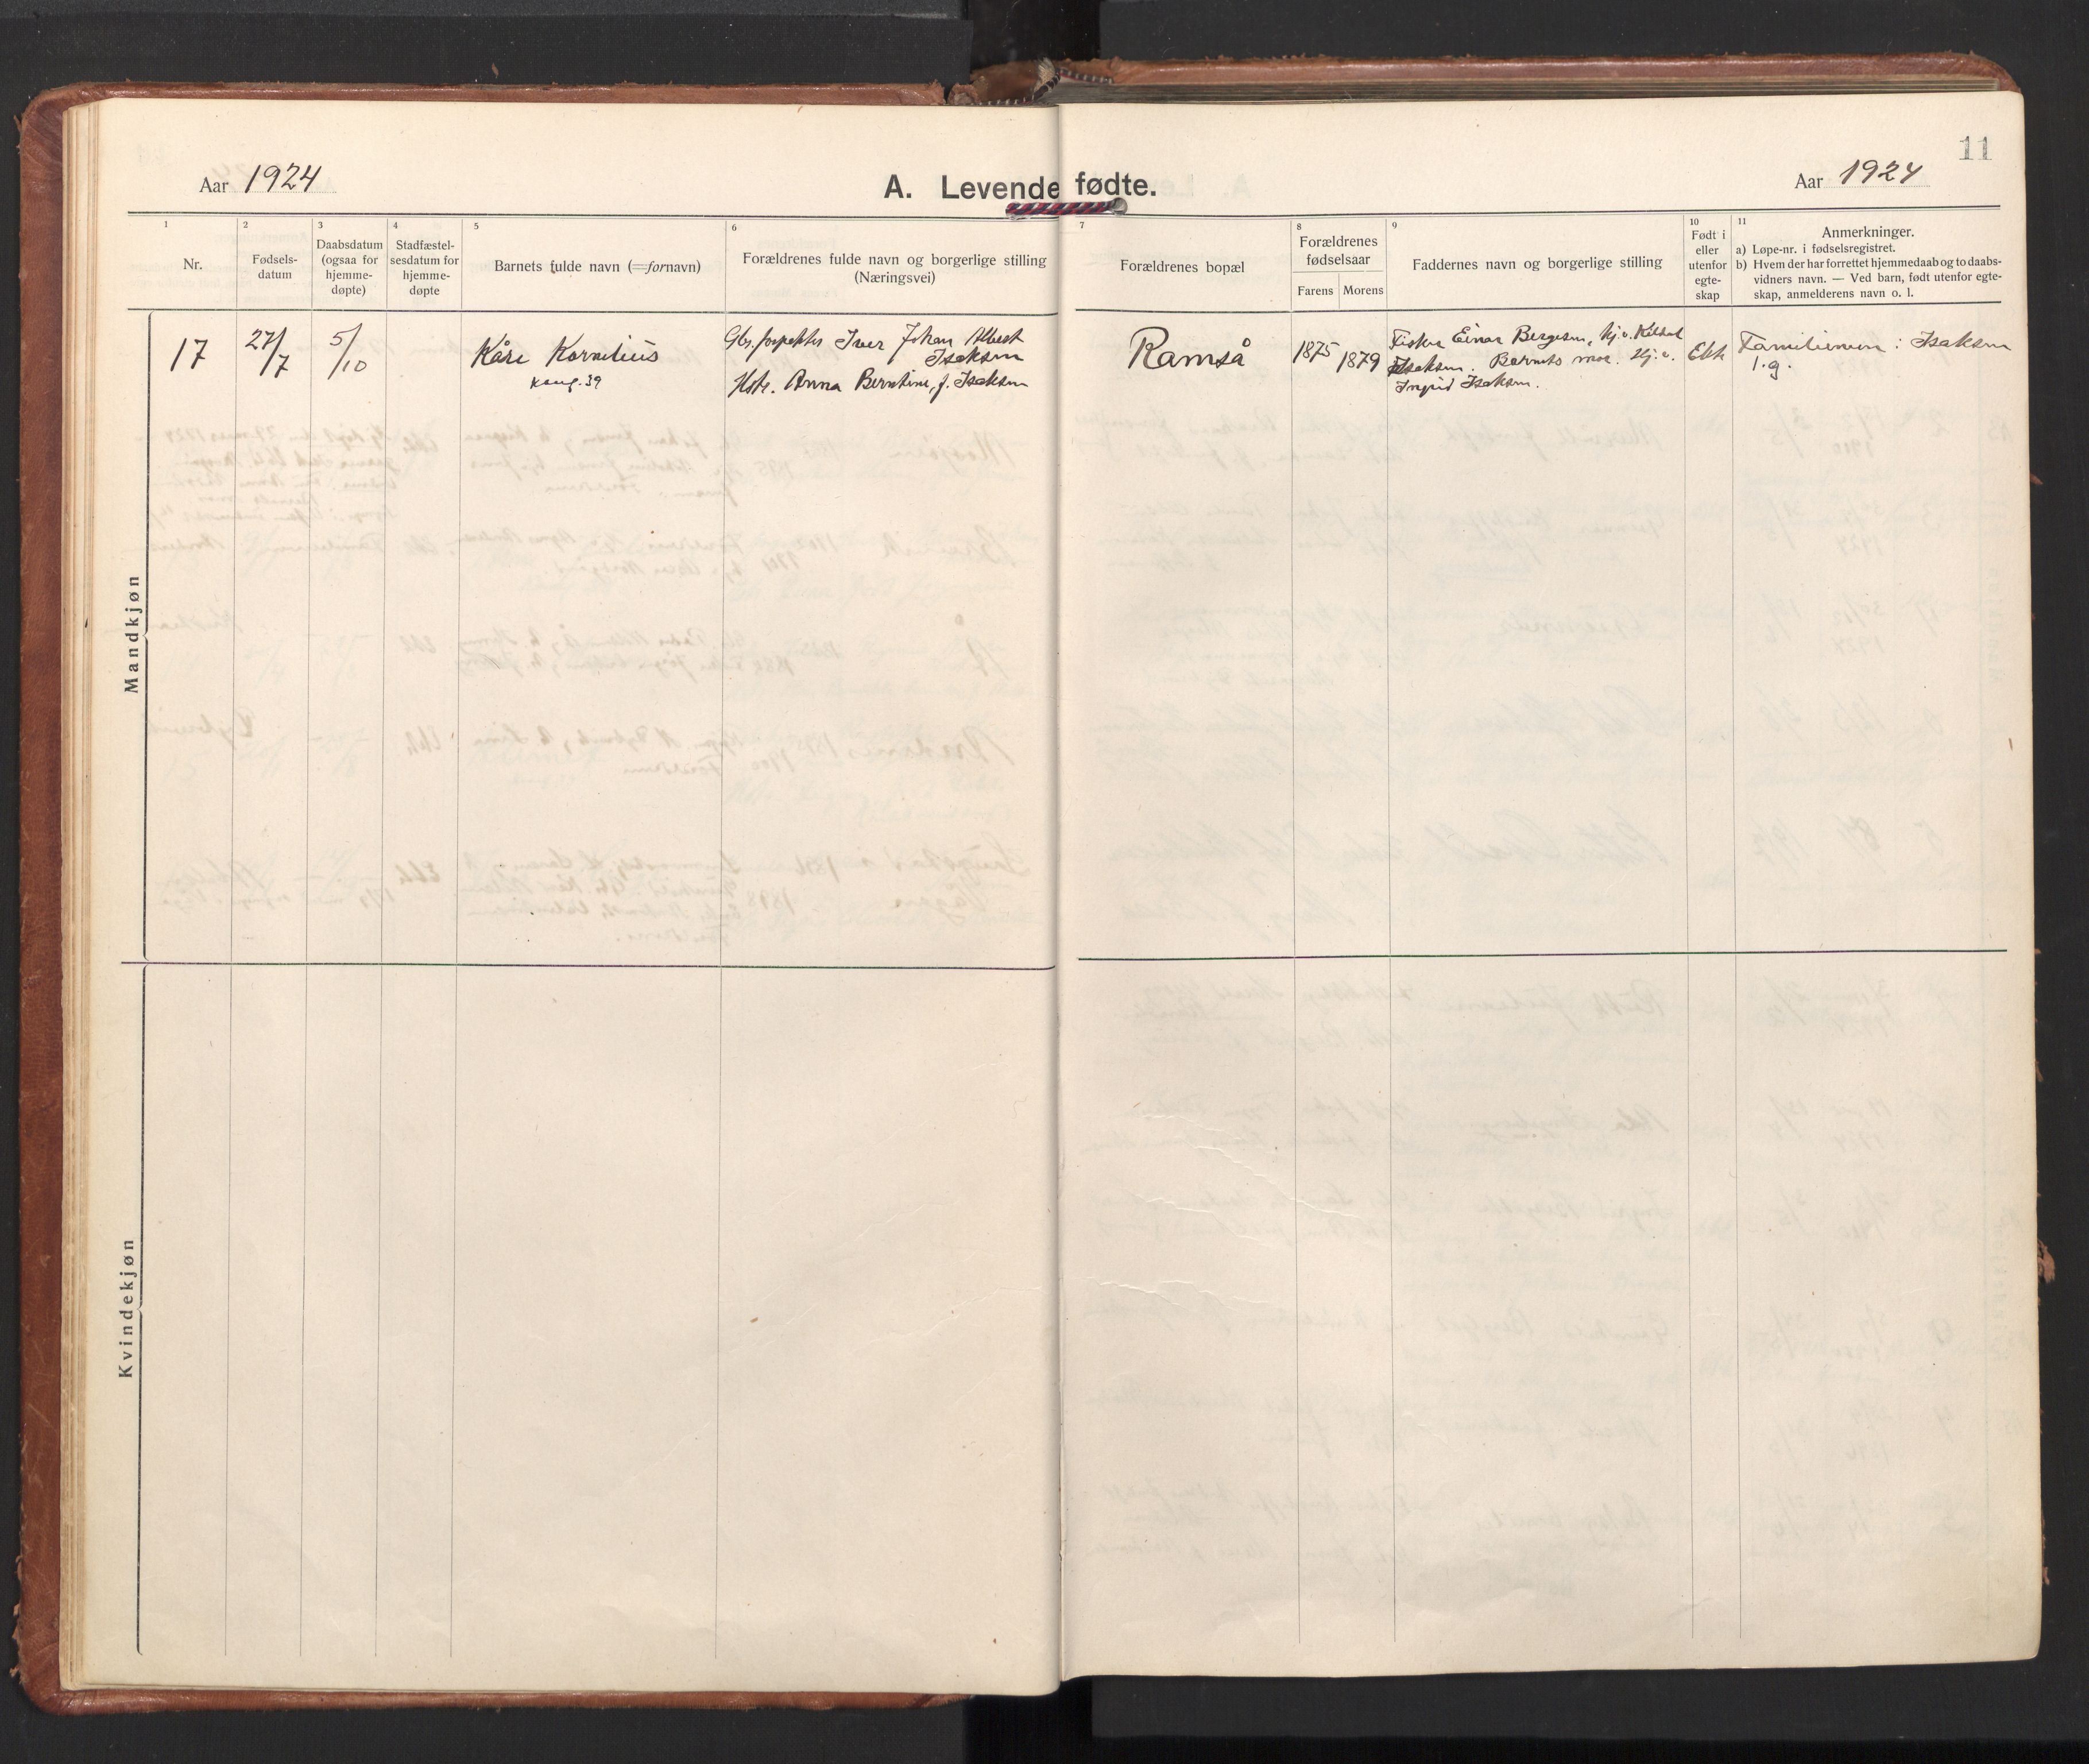 11
Aar 1924
A. Levende fødte.
Aar 1924
1
Nr.
2
Fødsels-
datum
3
Daabsdatum
(ogsaa for
hjemme-
døpte)
4
Stadfæstel-
sesdatum for
hjemme-
døpte
5
Barnets fulde navn (=fornavn)
6
Forældrenes fulde navn og borgerlige stilling
(Næringsvei)
7
Forældrenes bopæl
8
Forældrenes
fødselsaar
Farens Morens
9
Faddernes navn og borgerlige stilling
10
Født i
eller
utenfor
egte-
skap
11
Anmerkninger.
a) Løpe-nr. i fødselsregistret.
b) Hvem der har forrettet hjemmedaab og to daabs-
vidners navn. — Ved barn, født utenfor egte-
skap, anmelderens navn o. l.
Mandkjøn
17
27/7
5/10
Kåre Kornelius
konf. 39
Gbr. Iver Johan Albert
Isaksen
Hstr. Anna Berntine, f. Isaksen
Ramså
1875 1879
Fisker Einar Bergesen, Hj.v.
Isaksen. Barnets mor. Hj.v.
Ingrid Isaksen.
Ekte
Familienavn: Isaksen
1.g.
Kvindekjøn